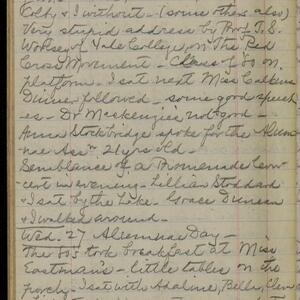 Colby & I without - (some others also)
Very stupid address by Prof. T. S.
Wolsey of Yale College, on The Red
Cross Movement - Class of 81 on
platform - I sat next Miss Calkins
Dinner followed - some good speech-
es - Dr Mackenzie's not good -
Anna Stockbridge spoke for the Alum-
nae Assn 21 yrs old -
Semblance of a Promenade Con-
cert in evening - Lillian Stoddard
& I sat by the Lake. Grace Duncan
& I walked around -
Wed. 27 Alumnae Day -
The 80s took breakfast at Miss
Eastman's - little tables on the
porch - I sat with Adaline, Belle, Clem